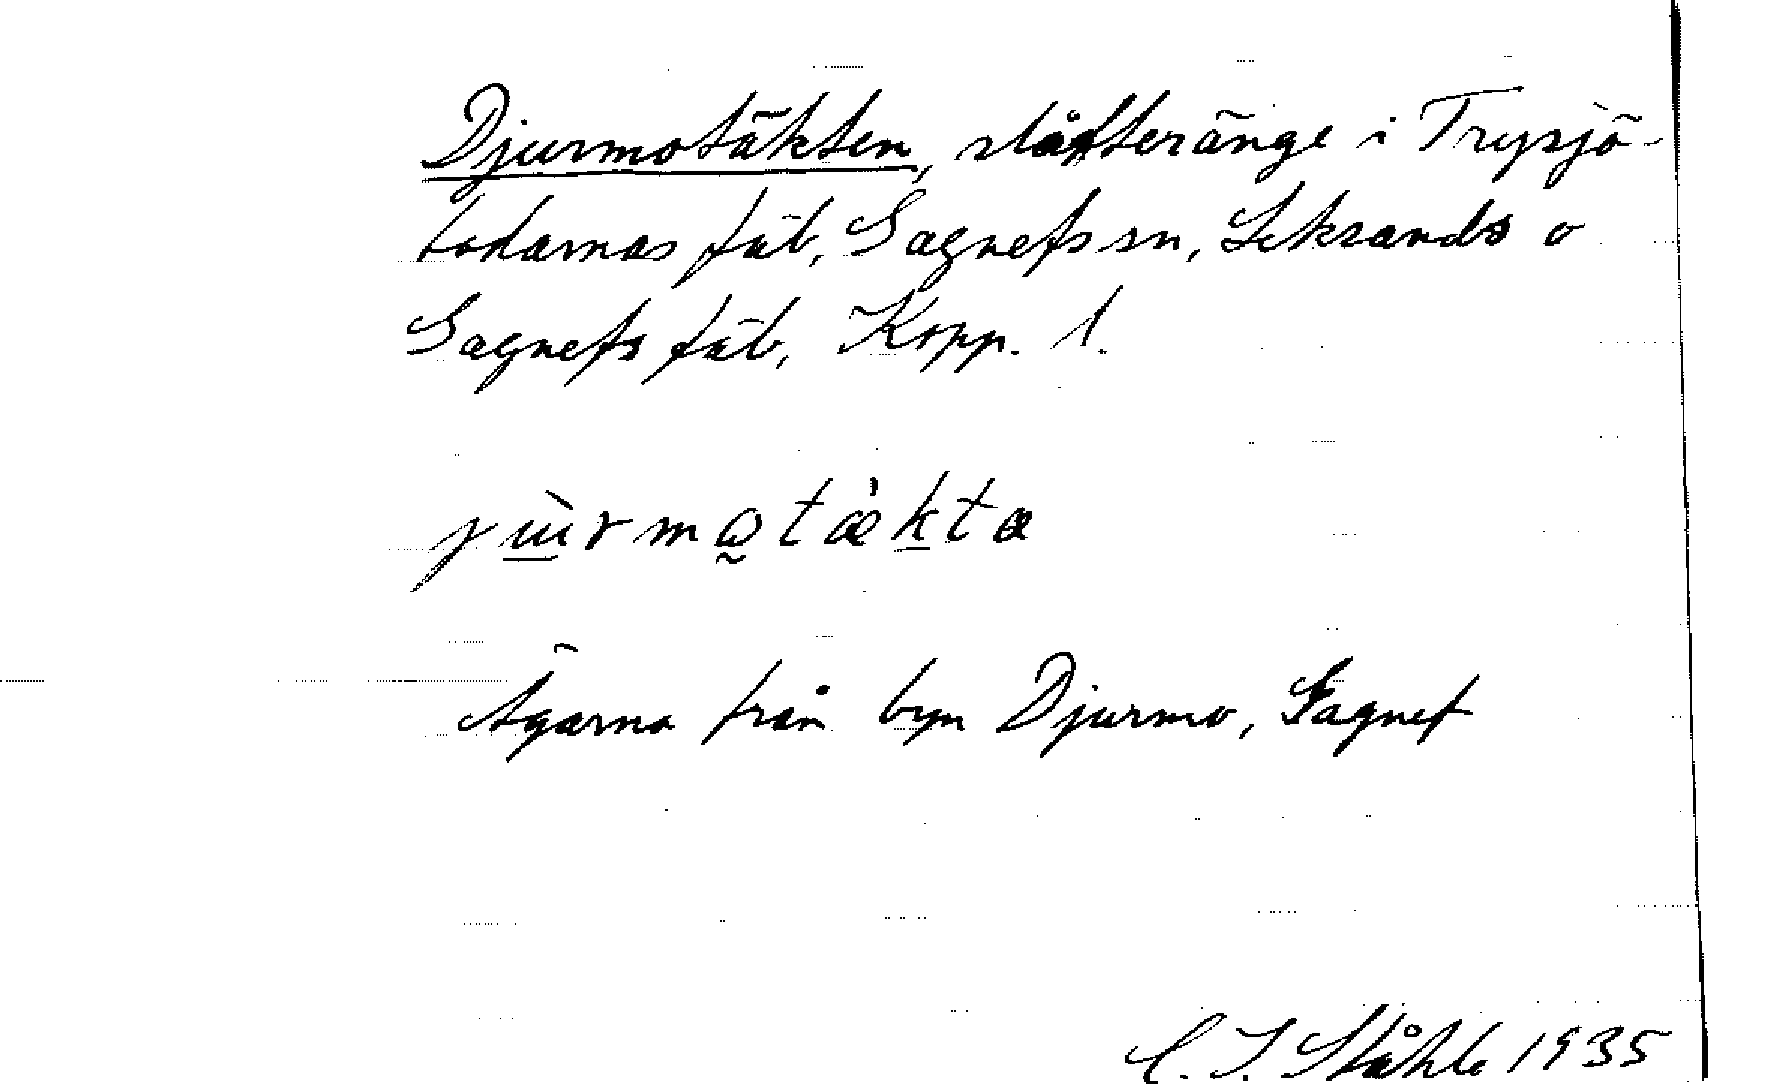 Djurmotäkten, slåtteränge i Trysjö-
bodarnas fäb, Gagnefs sn, Leksands o
Gagnefs fäb, Kopp. l.
Ägarna från byn Djurmo, Gagnef
C. I. Ståhle 1935